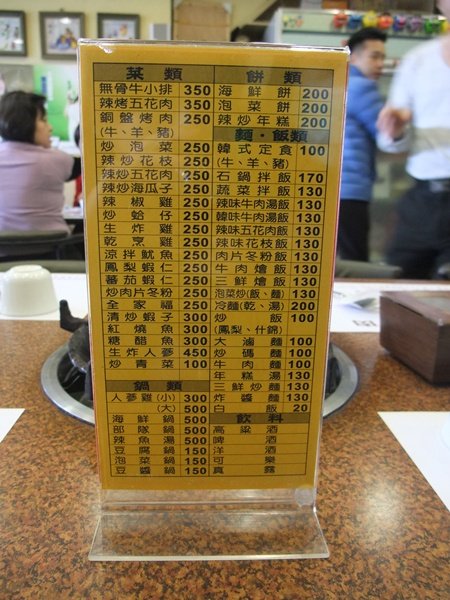 菜類
無骨牛小排 350
辣烤五花肉 350
銅盤烤肉 250
(牛、羊、豬)
炒泡菜 250
辣炒花枝 250
辣炒五花肉 250
辣炒海瓜子 250
辣椒雞 250
炒蛤仔 250
生炸雞 250
乾烹雞 250
涼拌魷魚 250
鳳梨蝦仁 250
蕃茄蝦仁 250
炒肉片冬粉 250
全家福 250
清炒蝦子 300
紅燒魚 300
糖醋魚 300
生炸人參 450
炒青菜 100
鍋類
人參雞(小) 300
(大) 500
海鮮鍋 500
部隊鍋 500
辣魚湯 500
豆腐鍋 150
泡菜鍋 150
豆醬鍋 150
餅類
海鮮餅 200
泡菜餅 200
辣炒年糕 200
麵・飯類
韓式定食 100
(牛、羊、豬)
石鍋拌飯 170
蔬菜拌飯 130
辣味牛肉湯飯 130
韓味牛肉湯飯 130
辣味五花肉飯 130
辣味花枝飯 130
肉片冬粉飯 130
牛肉燴飯 130
三鮮燴飯 130
泡菜炒(飯、麵) 130
冷麵(乾、湯) 200
炒飯 100
(鳳梨、什錦)
大滷麵 100
炒碼麵 100
牛肉麵 100
年糕湯 130
三鮮炒麵 130
炸醬麵 130
白飯 20
飲料
高粱酒
啤酒
洋酒
可樂
真露